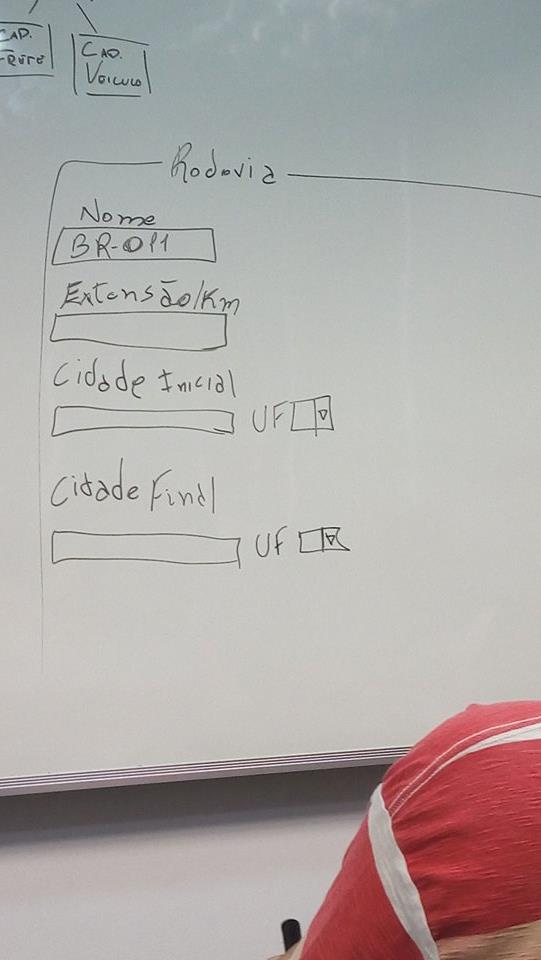 CAD.
FRETE
CAD.
VEICULO
Rodovia
Nome
BR-011
Extensão/Km
Cidade Inicial
UF
Cidade Final
UF